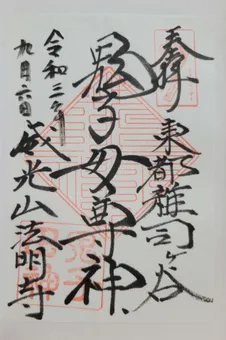 奉拝 東都雑司ヶ谷
鬼子母尊神
令和三年
九月六日 威光山法明寺